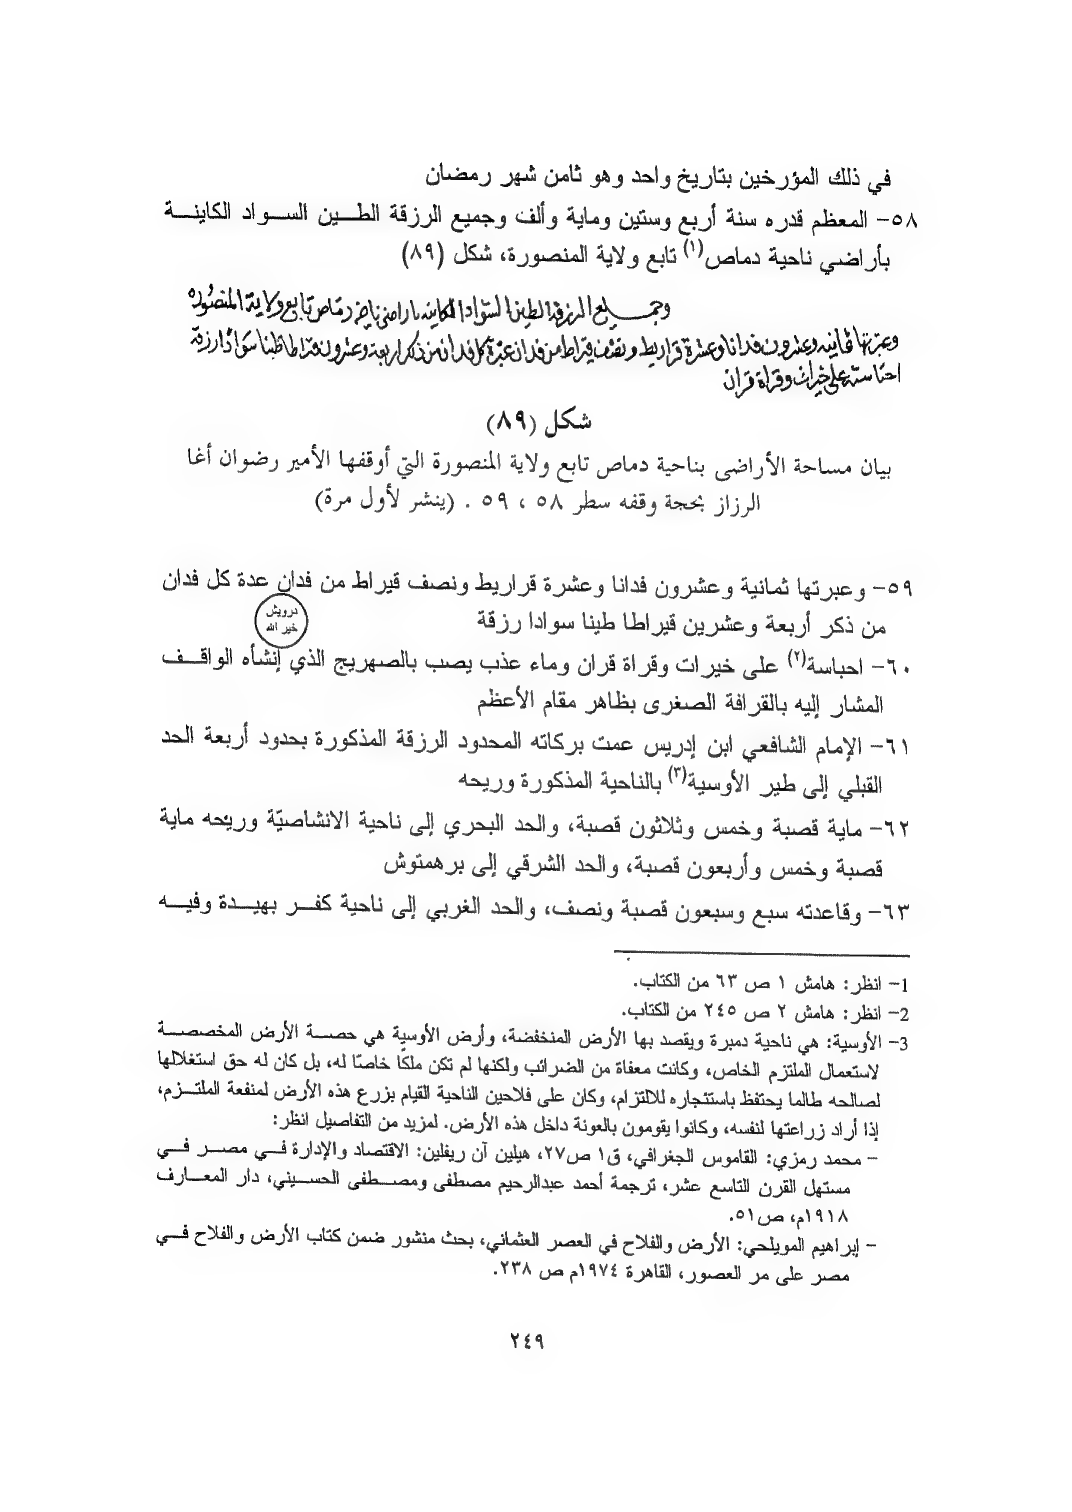 في ذلك المؤرخين بتاريخ واحد وهو ثامن شهر رمضان
٥٨- المعظم قدره سنة أربع وستين وماية وألف وجميع الرزقة الطين السواد الكاينة
بأراضي ناحية دماص(١) تابع ولاية المنصورة، شكل (٨٩)
وجميع الرزقة الطين السواد الكاينه باراضي ناحية دماص تابع ولاية المنصوره
وعبرتها ثمانيه وعشرون فدانا وعشرة قراريط ونصف قيراط من فدان عدة كل فدان من ذكر اربعة وعشرون قيراطا طينا سوادا رزقة
احباسة على خيرات وقراة قران
شكل (٨٩)
بيان مساحة الأراضى بناحية دماص تابع ولاية المنصورة التي أوقفها الأمير رضوان أغا
الرزاز بحجة وقفه سطر ٥٨ ، ٥٩ . (ينشر لأول مرة)
٥٩- وعبرتها ثمانية وعشرون فدانا وعشرة قراريط ونصف قيراط من فدان عدة كل فدان
من ذكر أربعة وعشرين قيراطا طينا سوادا رزقة
درويش
خير الله
٦٠- احباسة(٢) على خيرات وقراة قران وماء عذب يصب بالصهريج الذي إنشأه الواقف
المشار إليه بالقرافة الصغرى بظاهر مقام الأعظم
٦١- الإمام الشافعي ابن إدريس عمت بركاته المحدود الرزقة المذكورة بحدود أربعة الحد
القبلي إلى طير الأوسية(٣) بالناحية المذكورة وريحه
٦٢- ماية قصبة وخمس وثلاثون قصبة، والحد البحري إلى ناحية الانشاصيّة وريحه ماية
قصبة وخمس وأربعون قصبة، والحد الشرقي إلى برهمتوش
٦٣- وقاعدته سبع وسبعون قصبة ونصف، والحد الغربي إلى ناحية كفر بهيدة وفيه
1- انظر: هامش ١ ص ٦٣ من الكتاب.
2- انظر: هامش ٢ ص ٢٤٥ من الكتاب.
3- الأوسية: هي ناحية دمبرة ويقصد بها الأرض المنخفضة، وأرض الأوسية هي حصة الأرض المخصصة
لاستعمال الملتزم الخاص، وكانت معفاة من الضرائب ولكنها لم تكن ملكًا خاصًا له، بل كان له حق استغلالها
لصالحه طالما يحتفظ باستئجاره للالتزام، وكان على فلاحين الناحية القيام بزرع هذه الأرض لمنفعة الملتزم،
إذا أراد زراعتها لنفسه، وكانوا يقومون بالعونة داخل هذه الأرض. لمزيد من التفاصيل انظر:
- محمد رمزي: القاموس الجغرافي، ق١ ص٢٧، هيلين آن ريفلين: الاقتصاد والإدارة في مصر في
مستهل القرن التاسع عشر، ترجمة أحمد عبدالرحيم مصطفى ومصطفى الحسيني، دار المعارف
١٩١٨م، ص٥١.
- إبراهيم المويلحي: الأرض والفلاح في العصر العثماني، بحث منشور ضمن كتاب الأرض والفلاح في
مصر على مر العصور، القاهرة ١٩٧٤م ص ٢٣٨.
٢٤٩